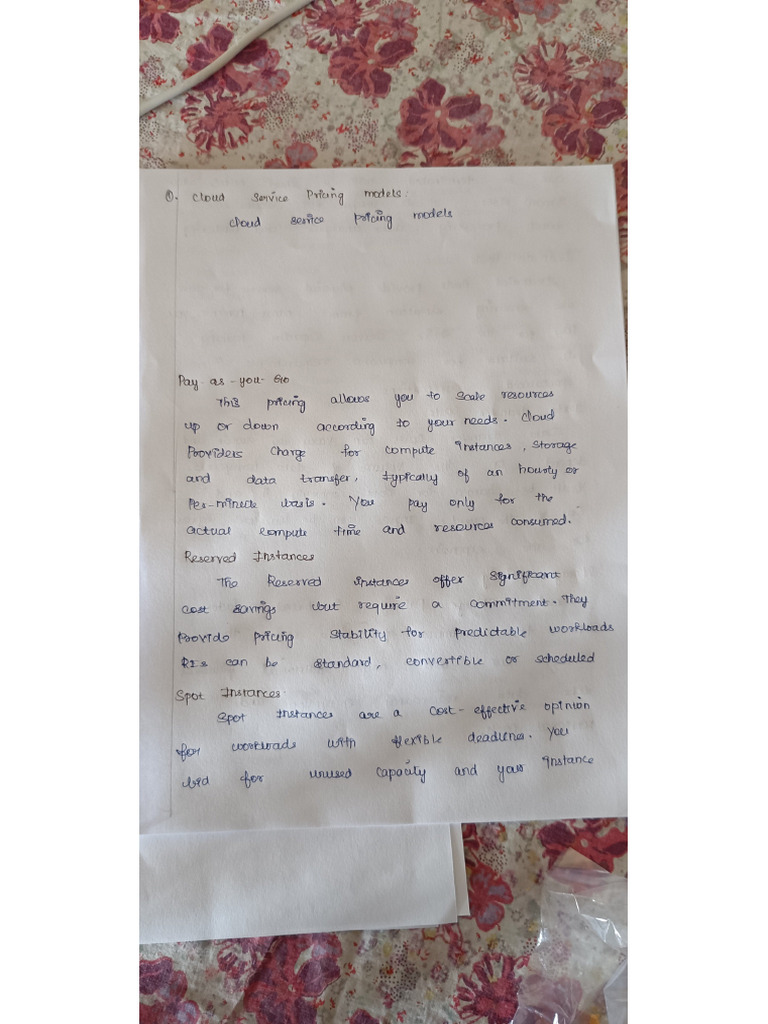 ①. Cloud Service Pricing models:
Cloud service pricing models
Pay-as-you-Go
This pricing allows you to scale resources
up or down according to your needs. Cloud
Providers charge for compute instances, storage
and data transfer, typically of an hourly or
Per-minute basis. You pay only for the
actual compute time and resources consumed.
Reserved Instances
The Reserved instances offer significant
cost savings but require a commitment. They
Provide pricing stability for predictable workloads
RIs can be standard, convertible or scheduled
Spot Instances
Spot Instances are a cost-effective opinion
for workloads with flexible deadlines. You
bid for unused capacity and your instance